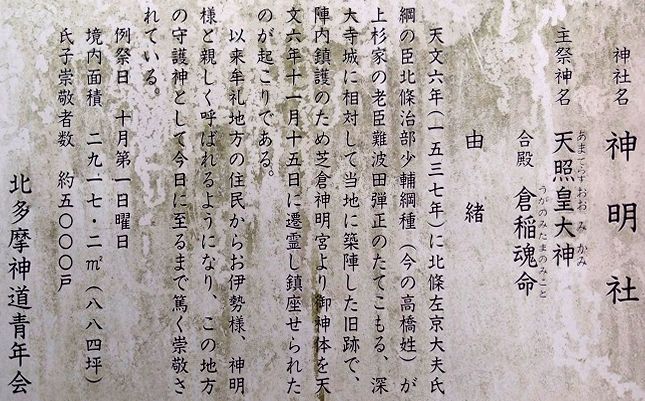 神社名 神明社
主祭神名 天照皇大神
あまてらすおおみかみ
合殿 倉稲魂命
うがのみたまのみこと
由緒
天文六年(一五三七年)に北條左京大夫氏
綱の臣北條治部少輔綱種(今の高橋姓)が
上杉家の老臣難波田弾正のたてこもる、深
大寺城に相対して当地に築陣した旧跡で、
陣内鎮護のため芝倉神明宮より御神体を天
文六年十一月十五日に遷霊し鎮座せられた
のが起こりである。
以来牟礼地方の住民からお伊勢様、神明
様と親しく呼ばれるようになり、この地方
の守護神として今日に至るまで篤く崇敬さ
れている。
例祭日 十月第一日曜日
境内面積 二九一七・二㎡(八八四坪)
氏子崇敬者数 約五〇〇〇戸
北多摩神道青年会